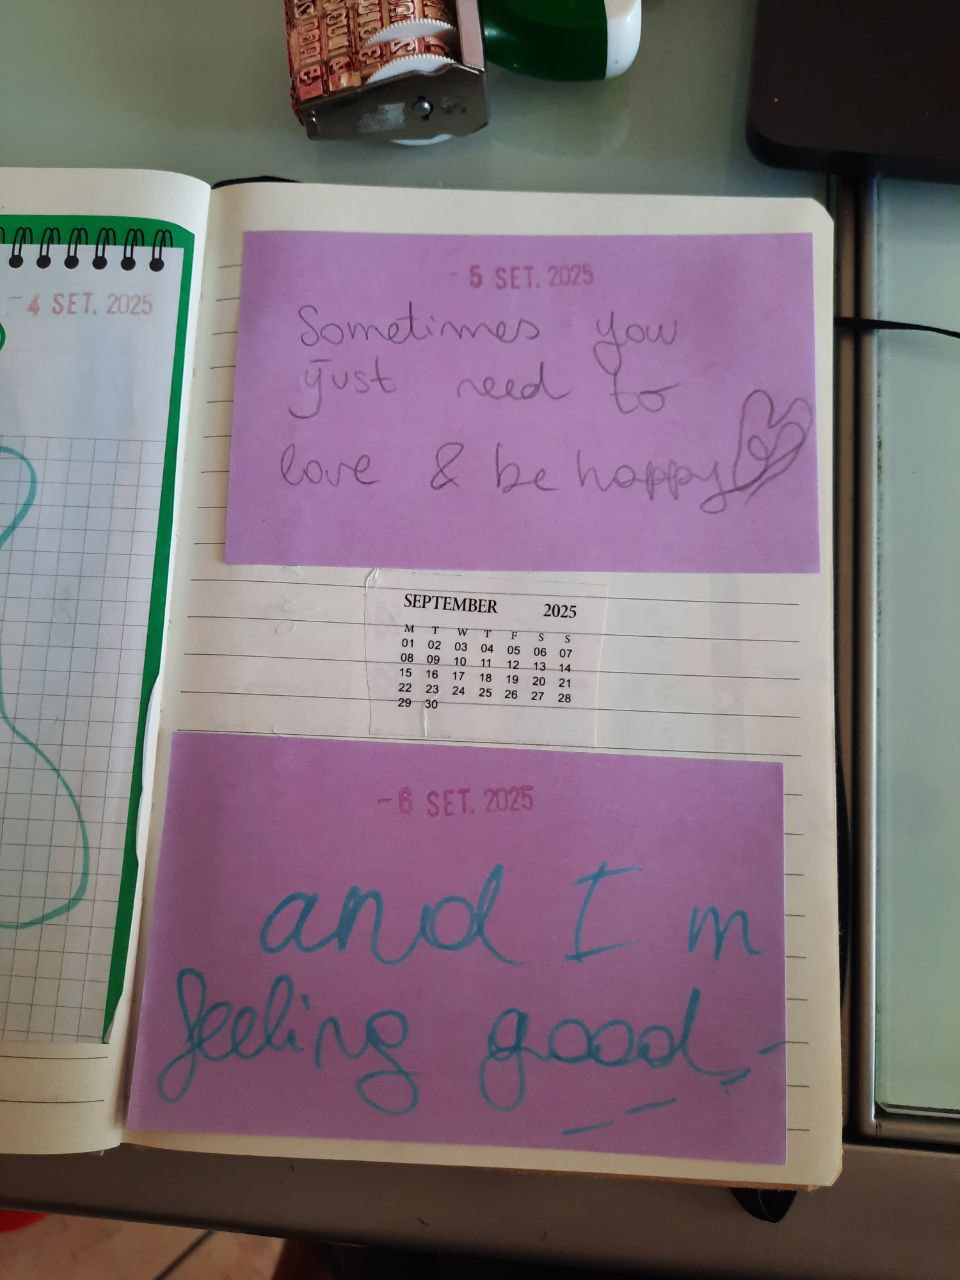 - 4 SET. 2025
- 5 SET. 2025
Sometimes you
just need to
love & be happy
SEPTEMBER 2025
M T W T F S S
01 02 03 04 05 06 07
08 09 10 11 12 13 14
15 16 17 18 19 20 21
22 23 24 25 26 27 28
29 30
- 6 SET. 2025
and I m
feeling good